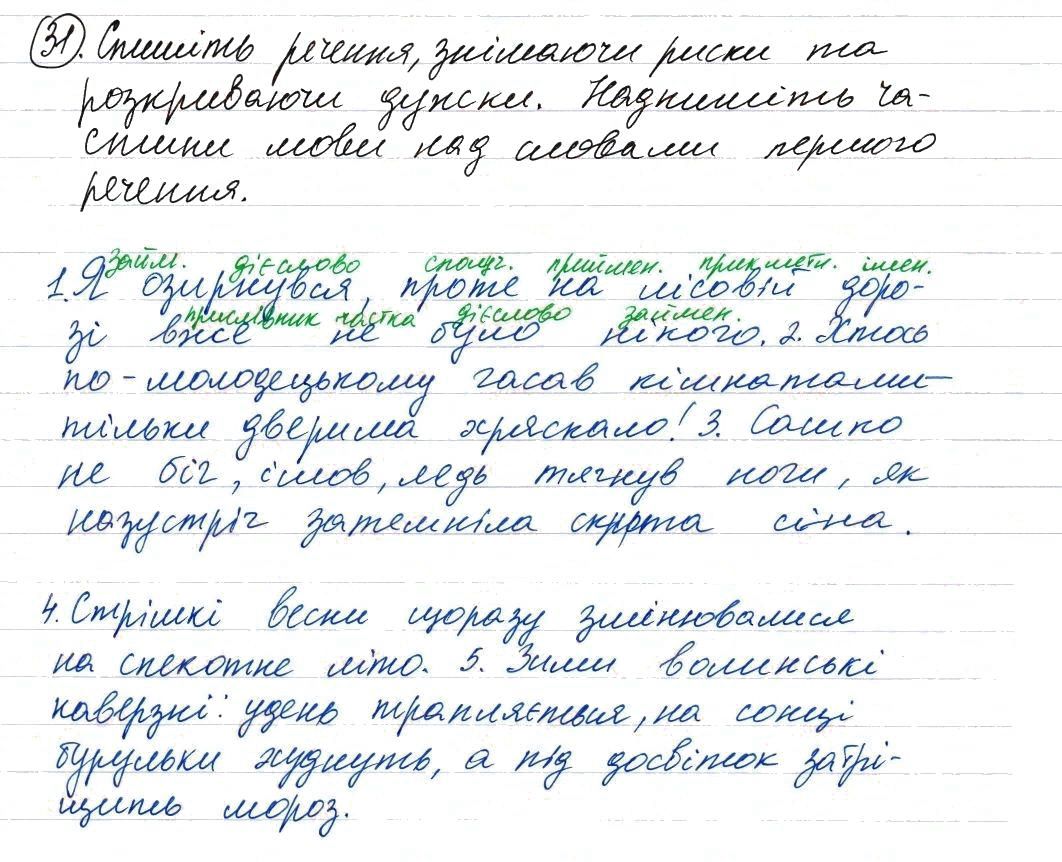 31. Спишіть речення, знімаючи риски та
розкриваючи дужки. Надпишіть ча-
стини мови над словами першого
речення.
займ. дієслово сполуч. приймен. прикметн. імен.
1. Я озирнувся, проте на лісовій доро-
прислівник частка дієслово займен.
зі вже не було нікого. 2. Хтось
по-молодецькому гасав кімнатами –
тільки дверима хряскало! 3. Сашко
не біг, ішов, ледь тягнув ноги, як
назустріч затемніла скирта сіна.
4. Стрімкі весни щоразу змінювалися
на спекотне літо. 5. Зими волинські
каверзні: удень трапляється, на сонці
бурульки худнуть, а під досвіток затрі-
щить мороз.